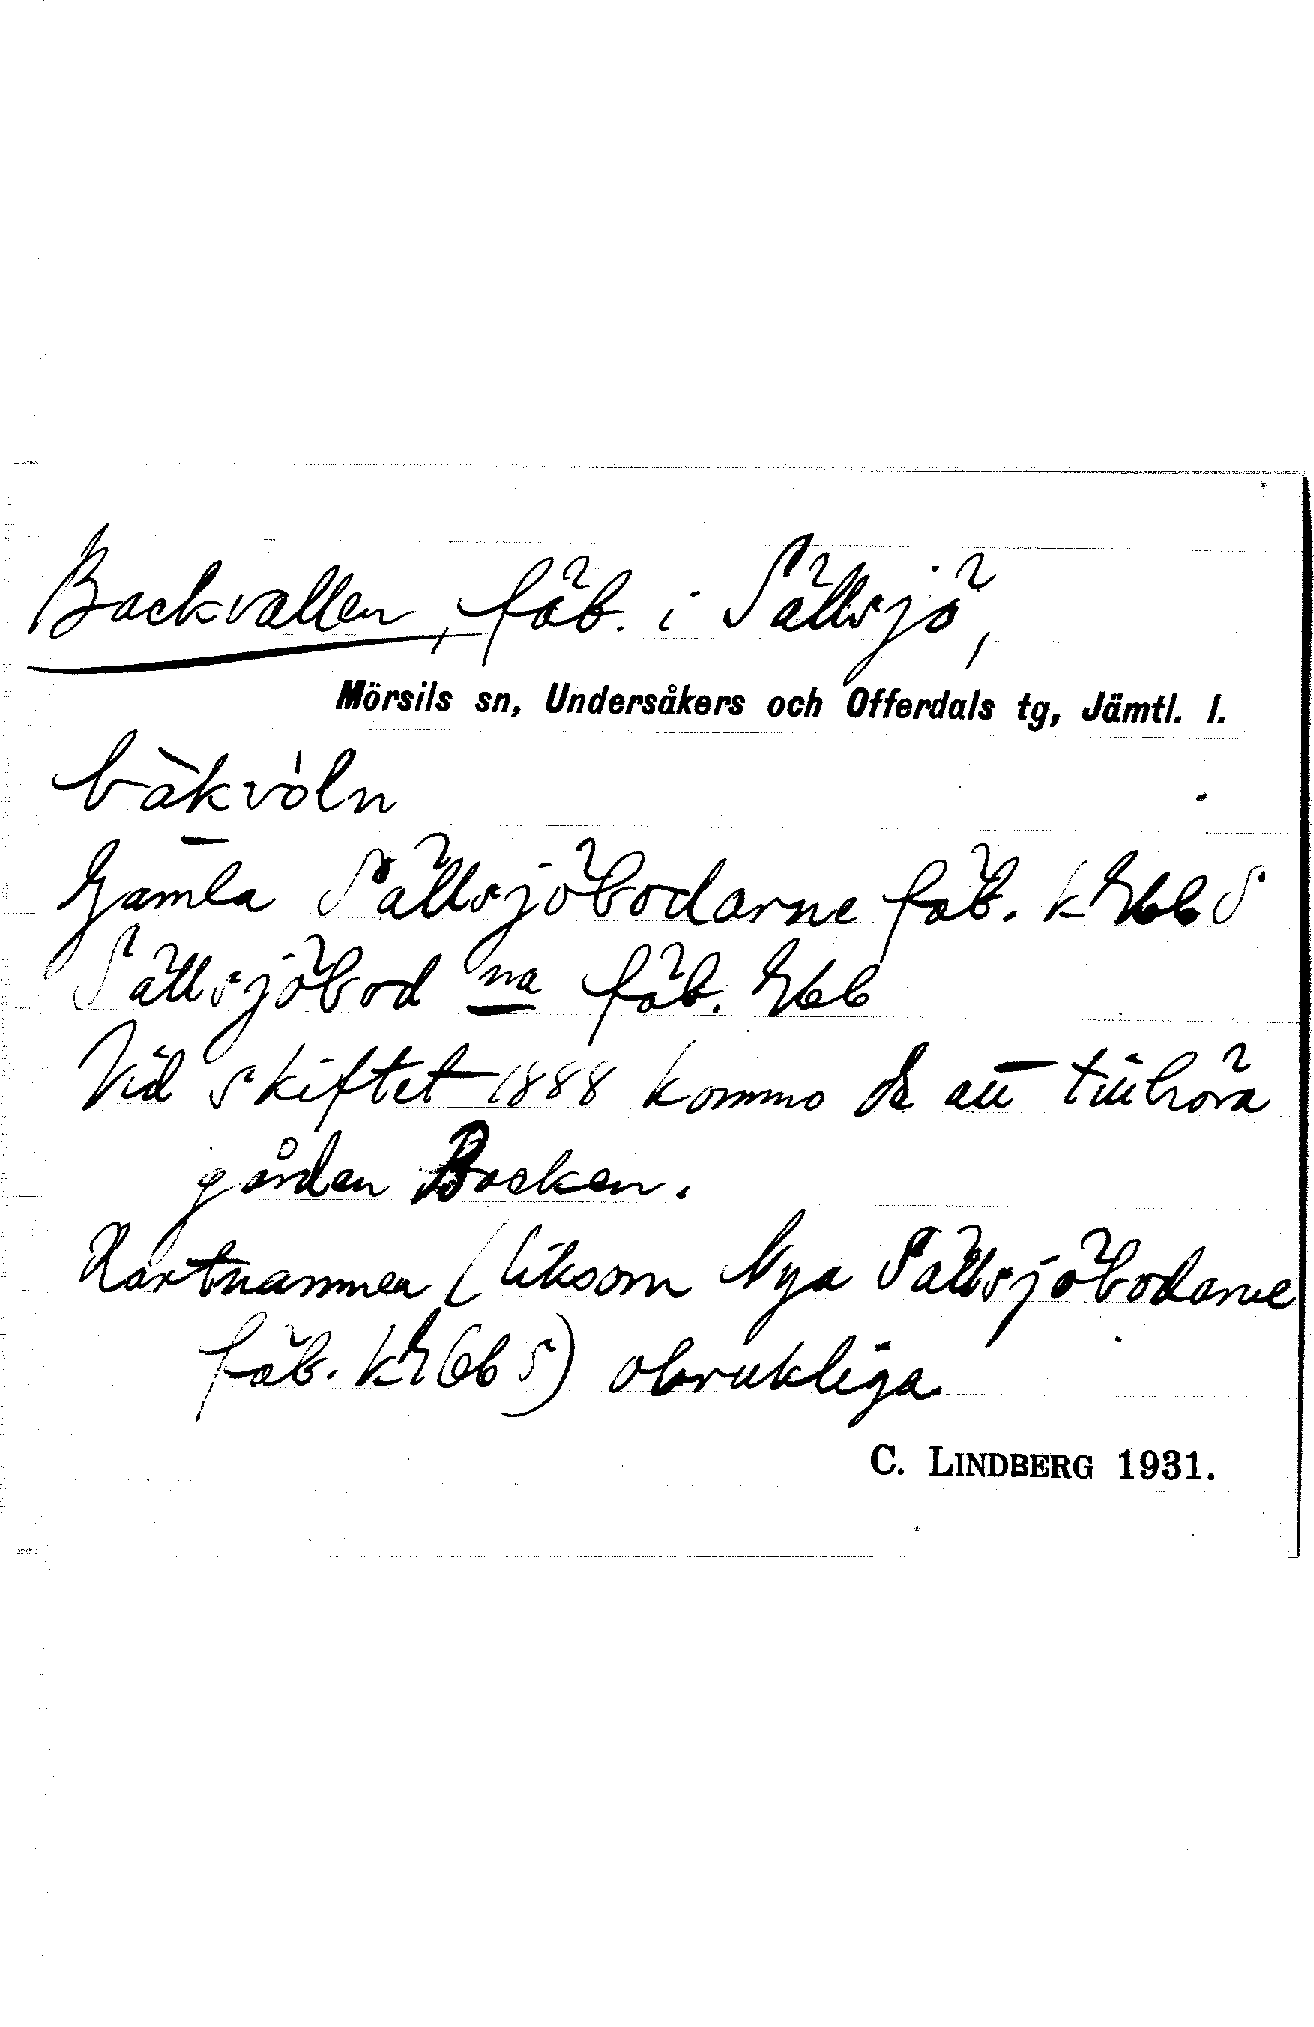 Backvallen, fäb. i Sällsjö,
Mörsils sn, Undersåkers och Offerdals tg, Jämtl. l.
bàkvòln
Gamla Sällsjöbodarne fäb. k S
Sällsjöbod na fäb.
Vid skiftet 1888 kommo de att tillhöra
gården Backen.
Kartnamnen (liksom Nya Sällsjöbodarne
fäb. S) obrukliga.
C. LINDBERG 1931.